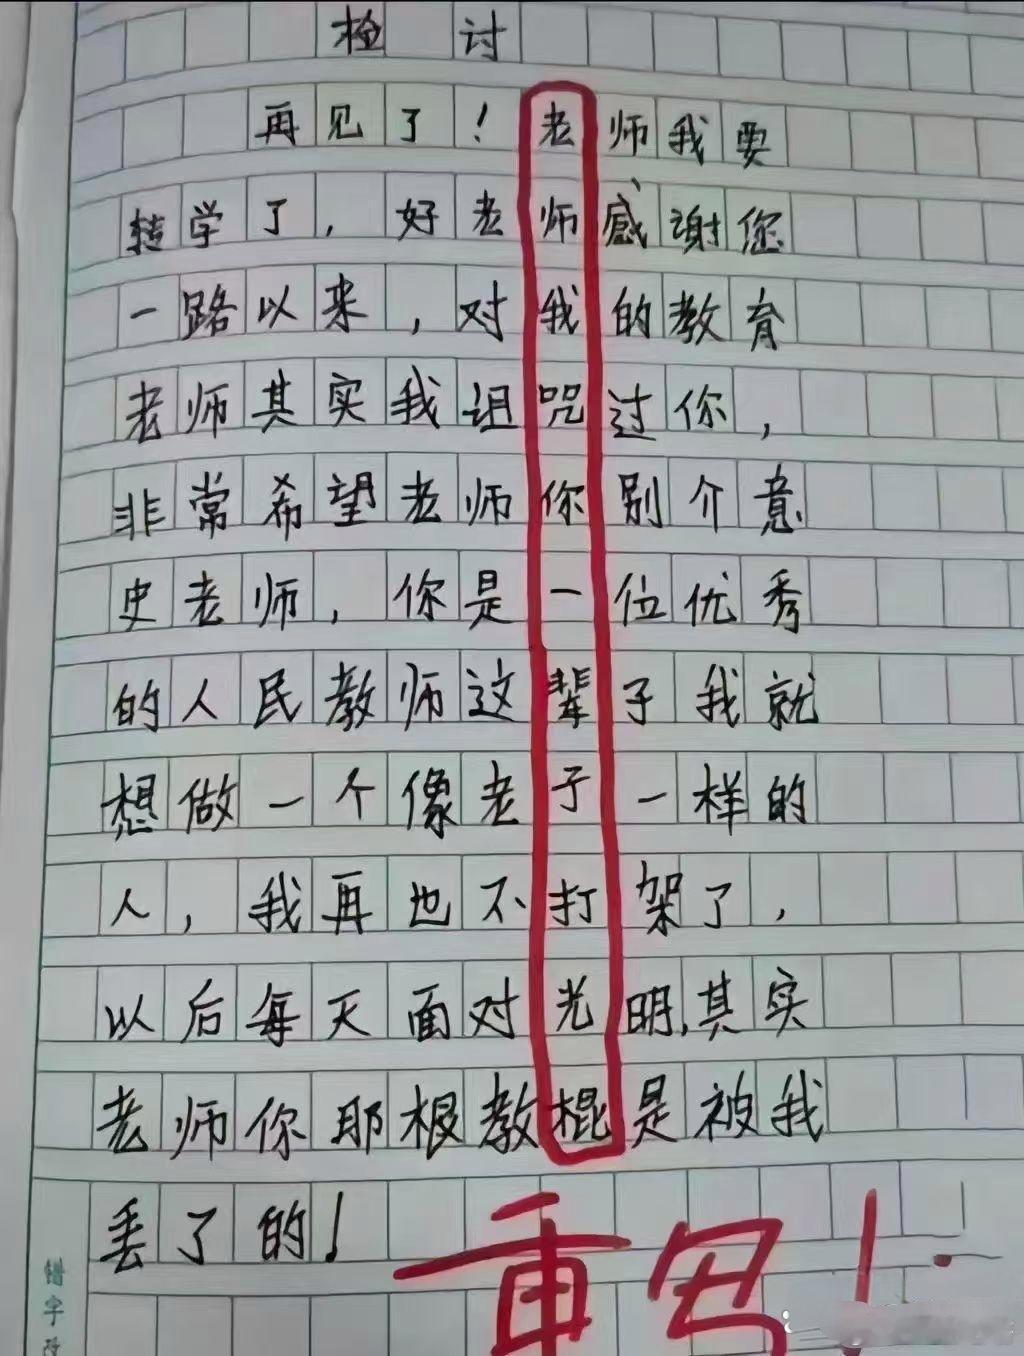 检讨
再见了！老师我要
转学了，好老师感谢您
一路以来，对我的教育
老师其实我诅咒过你，
非常希望老师你别介意
史老师，你是一位优秀
的人民教师这辈子我就
想做一个像老子一样的
人，我再也不打架了，
以后每天面对光明,其实
老师你耶根教棍是被我
丢了的！
重写！
错字改